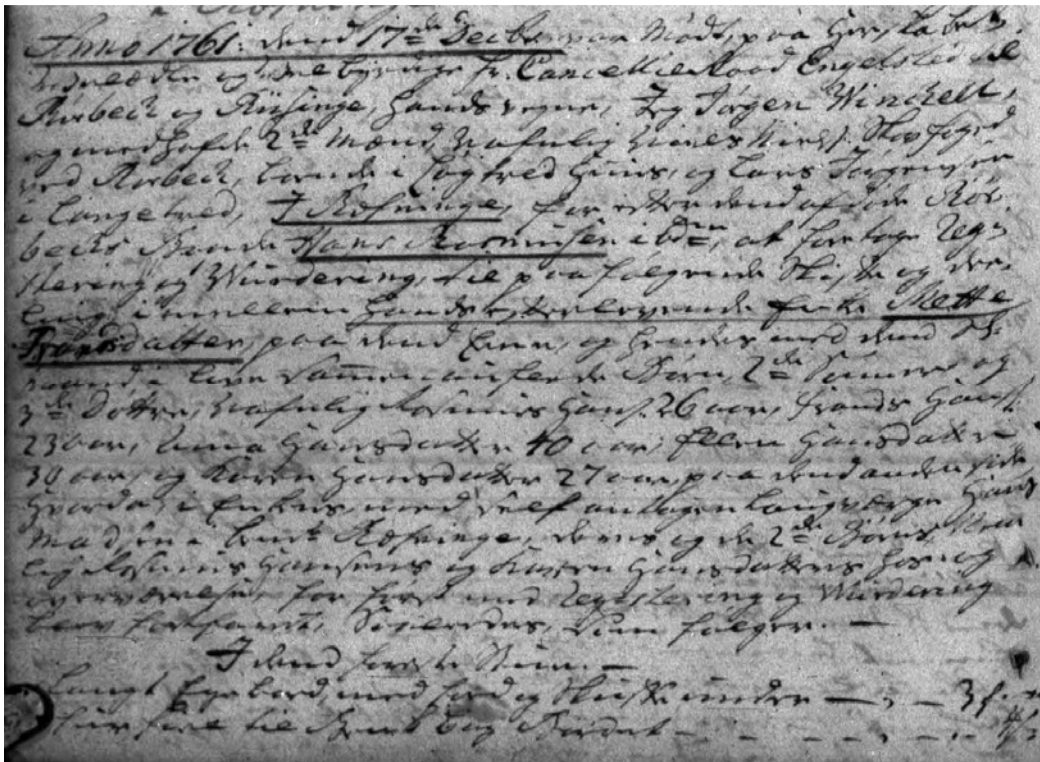 Anno 1761. dend 17de Decbr var Mødt, paa
og Velbyrdige Hr. Cancellie Raad Engelsted til
Rørbech og Riisinge, Hands vegne, Jeg Jørgen Winchell,
og medhafde 2de Mænd Nafnlig Skovfoged
ved Rørbech, boende i Huus, og Lars Jørgensen
i Langetved, I Refsvinge, for efter dend afdøde Rør-
bechs Bonde Hans Rasmusen ibdm, at foretage Regi-
stering og Wurdering, til paa følgende Skifte og dee-
ling imellem Hands efterlevende Enke Mette
Frandsdatter, paa dend Eene, og Hendes med dend Sl:
mand i live sammen auflede Børn, 2de Sønner og
3de Døttre, Nafnlig Rasmus Hans: 26 aar, Frands Hans:
23 aar, Anna Hansdatter 40 aar, Ellen Hansdatter
30 aar, og Karen Hansdatter 27 aar, paa dend anden side,
Hvorda i Enkens, med Self antagen Laugværge Hans
Madsen i bemte Refsvinge, deres og de 2de Børns, Nafn-
lig Rasmus Hansens og Karen Hansdatters hos og
overværelse, for først med Registering og Wurdering
blev forfaret, Saaledes, som følger. —
I dend første Stue. —
Langt Fyrbord, med fod og Skuffe under — — 3
til Bord —